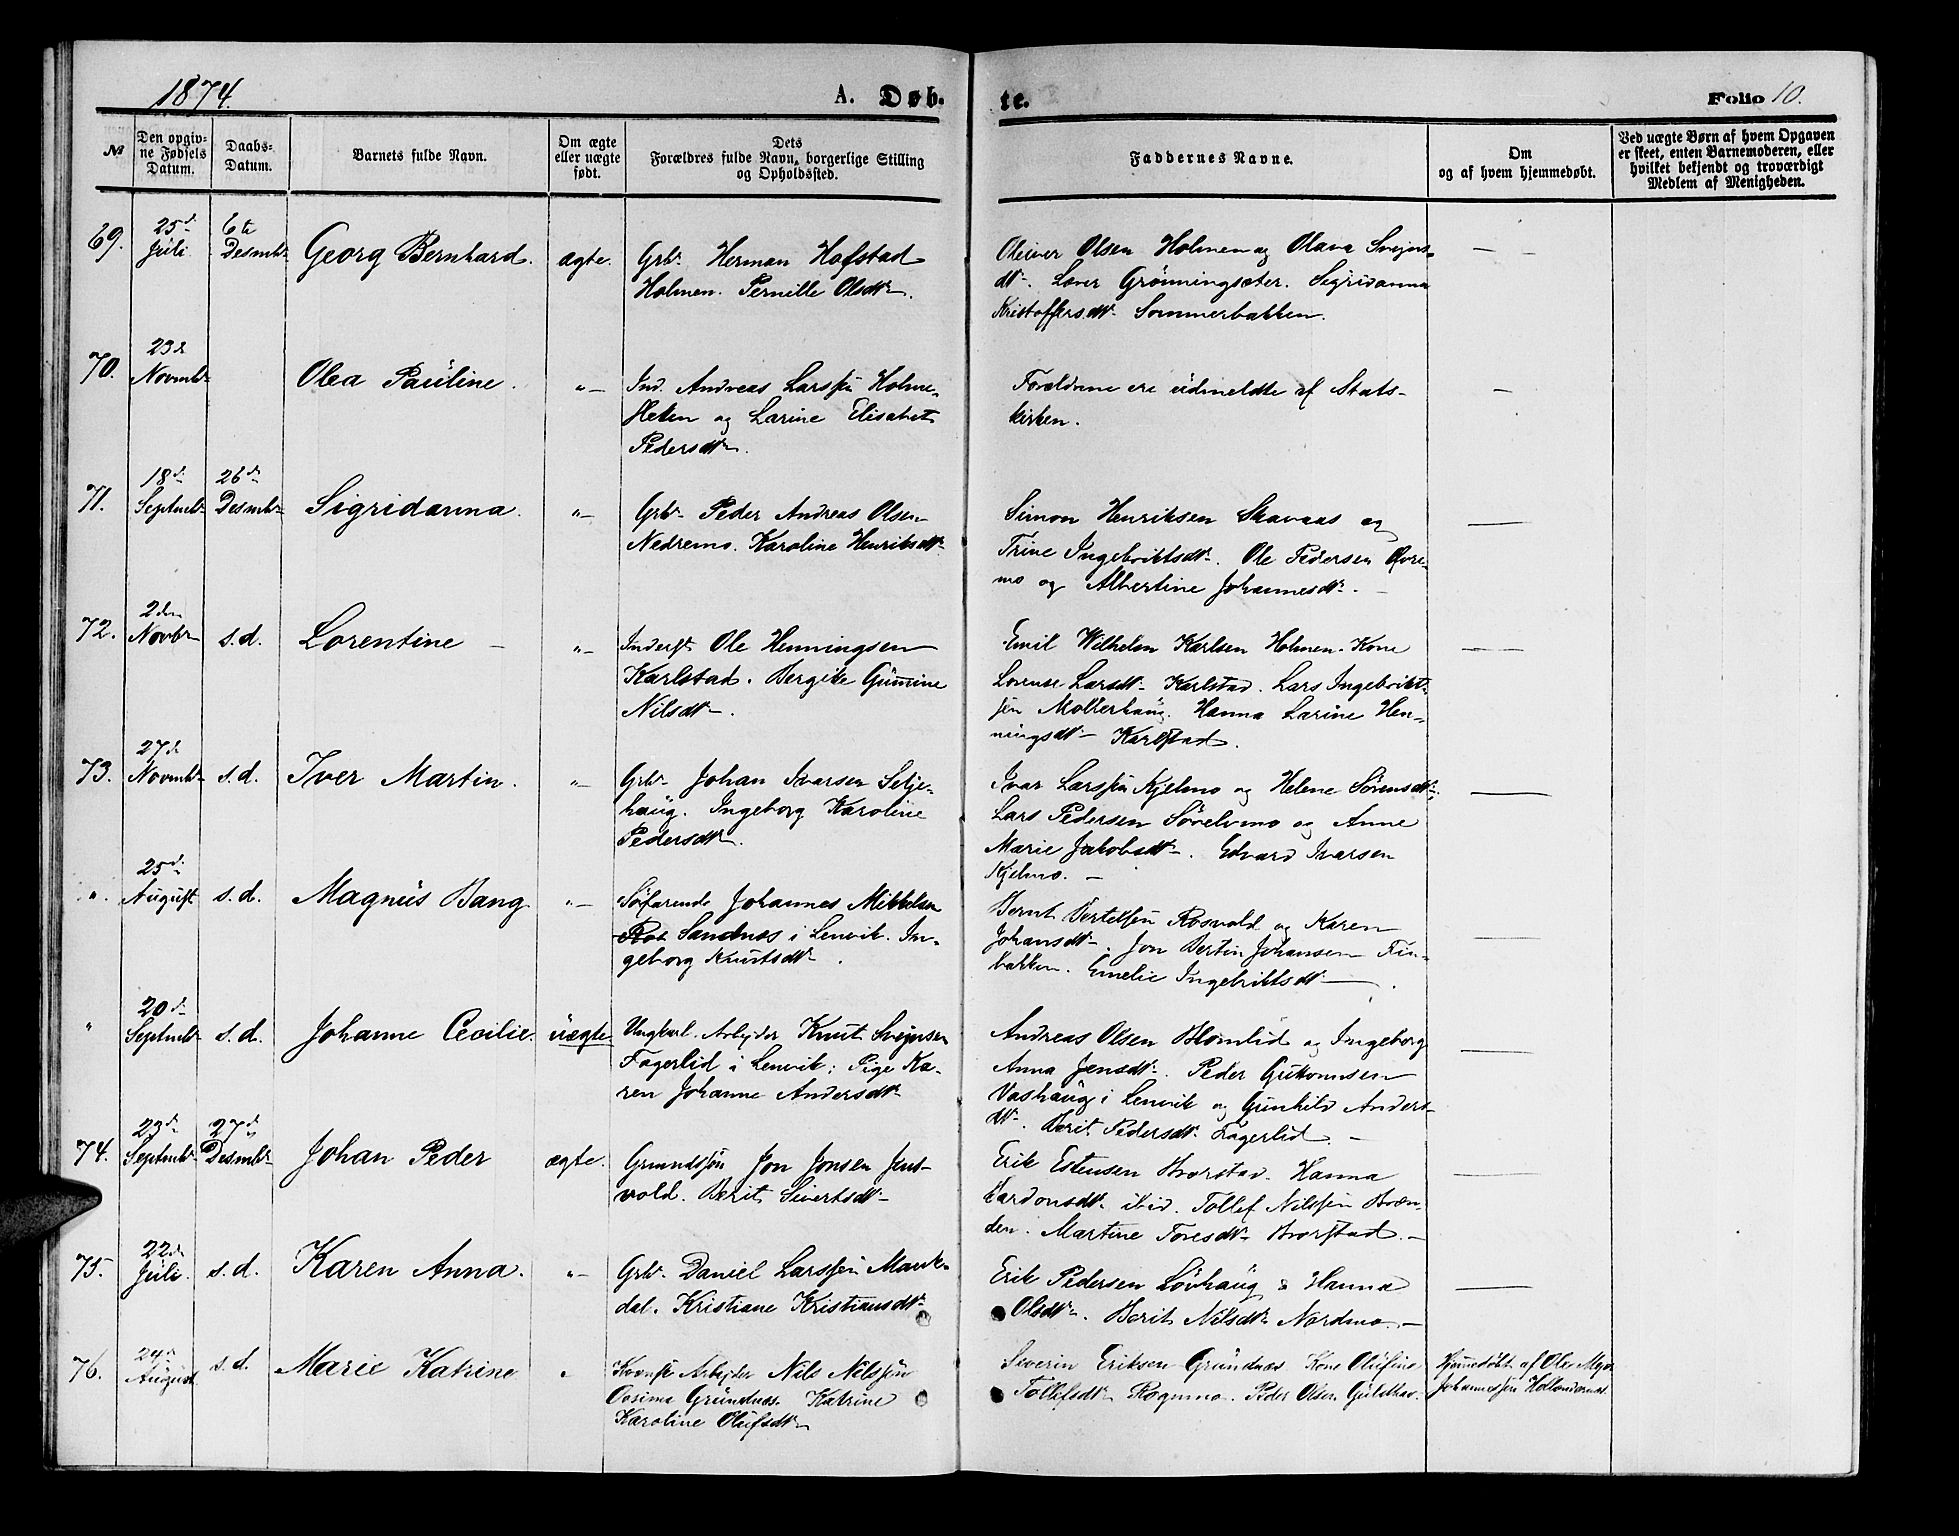 1874.
A. Døb-
te.
Folio 10.
No
Den opgiv-
ne Fødsels
Datum.
Daabs-
Datum.
Barnets fulde Navn.
Om ægte
eller uægte
født.
Dets
Forældres fulde Navn, borgerlige Stilling
og Opholdssted.
Faddernes Navne.
Om
og af hvem hjemmedøbt.
Ved uægte Børn af hvem Opgaven
er skeet, enten Barnemoderen, eller
hvilket bekjendt og troværdigt
Medlem af Menigheden.
69.
25d
Juli
6te
Desmbr
Georg Bernhard.
ægte.
Grbr. Herman Hafstad
Holmen. Pernille Olsdtr.
Oliver Olsen Holmen og Olava Svejns-
dtr. Lover Grønningsæter. Sigridanna
Kristoffersdtr. Sommerbakken.
— -
70.
23d
Novmbr
Olea Pauline.
"—
Ind. Andreas Larssen Holme-
sletten og Larine Elisabet
Pedersdtr.
Forældrene ere udmeldte af Stats-
kirken.
—
71.
18d
Septmbr
26d
Desmbr
Sigridanna.
"—
Grbr. Peder Andreas Olsen
Nedremo. Karoline Henriksdtr
Simon Henriksen Skavaas og
Trine Ingebriktsdtr. Ole Pedersen Øvre-
mo og Albertine Johannesdtr. —
—
72.
2den
Novbr
s.d.
Lorentine —
"—
Inderst Ole Henningsen
Karlstad. Bergite Gurine
Nilsdtr.
Emil Wilhelm Karlsen Holmen. Kone
Lorense Larsdtr. Karlstad. Lars Ingebrikt-
sen Mollerhaug. Hanna Larine Hen-
ningsdtr. Karlstad.
—
73.
27d
Novmbr
s.d.
Iver Martin.
"—
Grbr. Johan Ivarsen Selje-
haug. Ingeborg Karoline
Pedersdtr.
Ivar Larssen Kjelmo og Helene Sørensdtr.
Lars Pedersen Sørelvmo og Anne
Marie Jakobsdtr. Edvard Ivarsen
Kjelmo. —
—
".
25d
August
s.d.
Magnus Bang
"—
Søfarende Johannes Mikkelsen
Sandnes i Lenvik. In-
geborg Knutsdtr.
Bernt Bertelsen Rosvold og Karen
Johansdtr. Jon Bertin Johansen Fin-
bakken. Emelie Ingebriktsdtr —.
—
"
20d
Septmbr
s.d.
Johanne Cecilie.
uægte.
Ungkarl Arbejder Knut Svejnsen
Fagerlid i Lenvik: Pige Ka-
ren Johanne Andersdtr.
Andreas Olsen Blomlid og Ingeborg
Anna Jensdtr. Peder Guttormsen
Vashaug i Lenvik og Gunhild Anders-
dtr. Berit Pedersdtr. Fagerlid. —
—
74.
23d
Septmbr
27d
Desmbr
Johan Peder
ægte.
Grundssøn Jon Jonsen Jens-
vold. Berit Sivertsdtr
Erik Estensen Brorstad. Hanna
Hardonsdtr. ibid. Tollef Nilssen Bræn-
den. Martine Toresdtr Brorstad. —
—
75.
22d
Juli.
s.d.
Karen Anna.
"—
Grbr. Daniel Larssen Mauk-
dal. Kristiane Kristiansdtr.
Erik Pedersen Løvhaug & Hanna
Olsdtr. Berit Nilsdtr Nordmo. —
—
76.
24d
August
s.d.
Marie Katrine
"
Arbejder Nils Nilssen
Grundnes. Katrine
Karoline Olufsdtr
Severin Eriksen Grundnes Kone Olufine
Tollefsdtr Rognmo. Peder Olsen Guldhav.
Hjemmedøbt af Ole Mejer
Johannessen